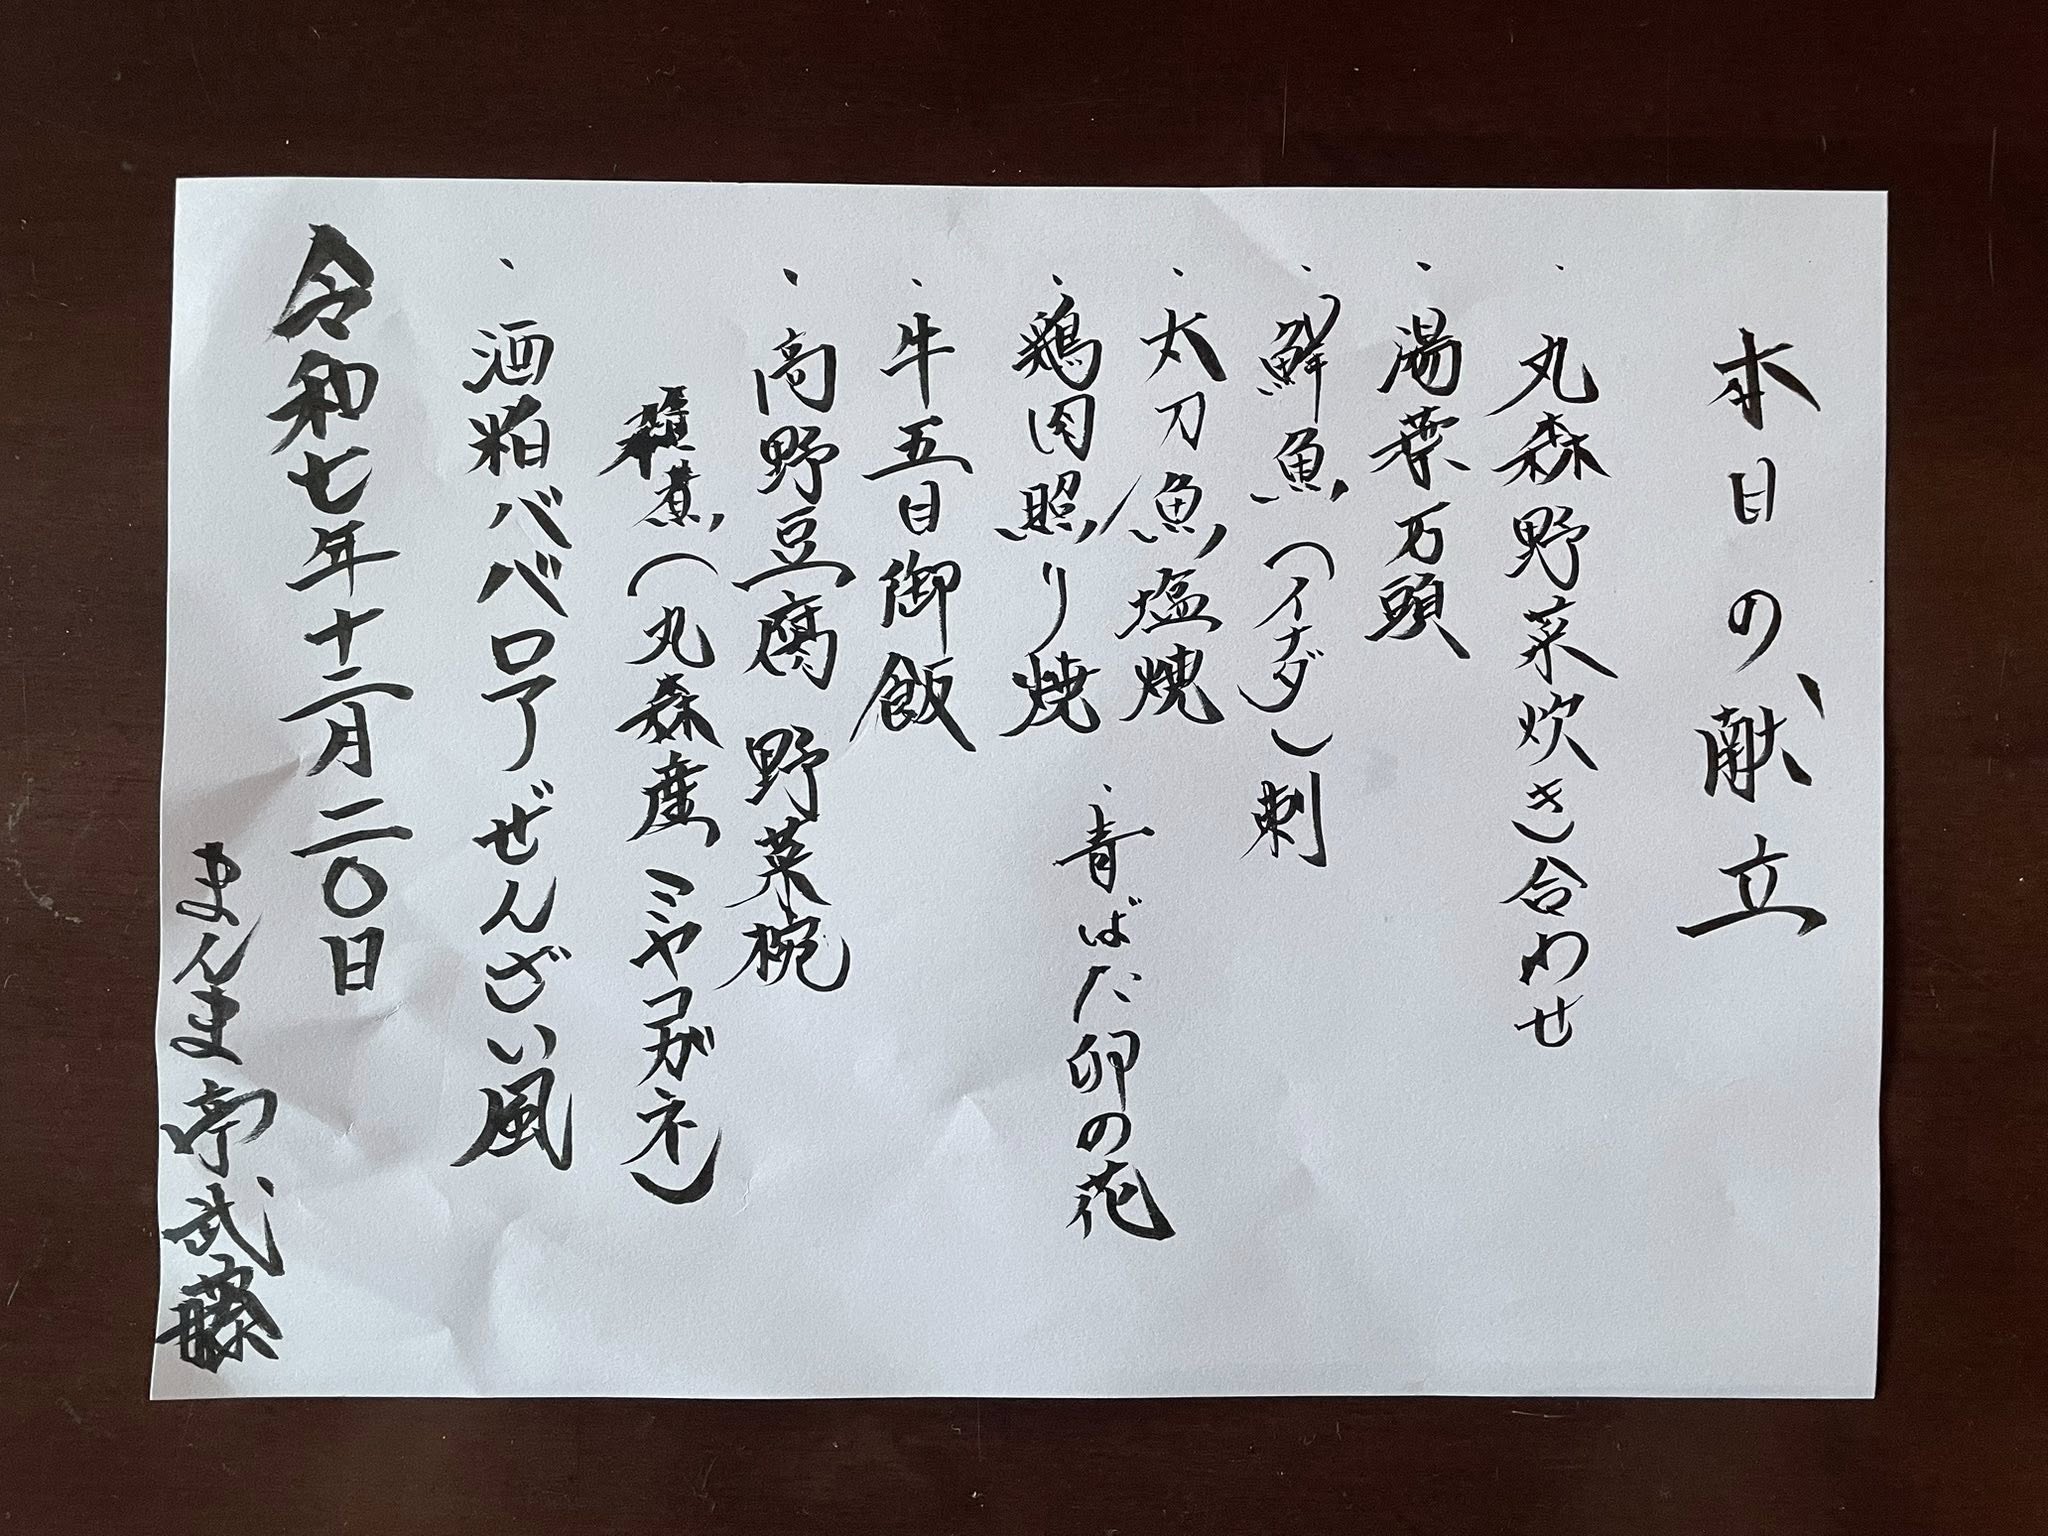 本日の献立
・丸森野菜炊き合わせ
・湯葉万頭
・鮮魚（イナダ）刺
・太刀魚塩焼
・鶏肉照り焼
・青ばた卯の花
・牛五目御飯
・高野豆腐 野菜椀
煮（丸森産ミヤコガネ）
・酒粕ババロアぜんざい風
令和七年十二月二〇日
まんま亭武藤